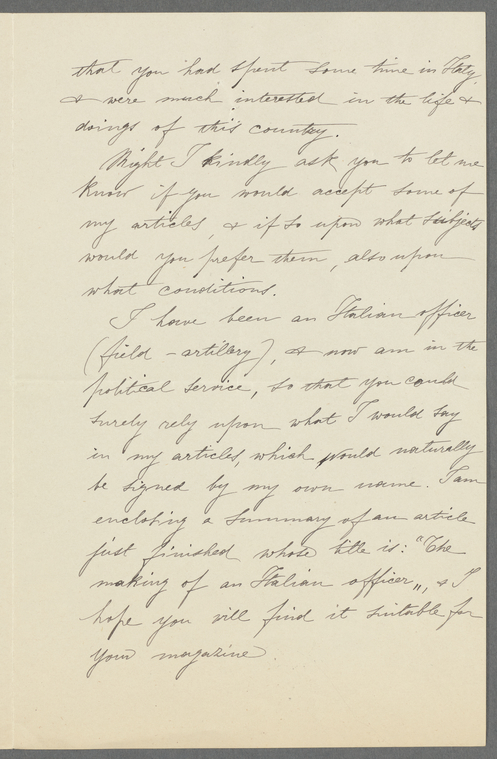 that you had spent some time in Italy,
& were much interested in the life &
doings of this country.
Might I kindly ask you to let me
know if you would accept some of
my articles, & if so upon what subjects
would you prefer them, also upon
what conditions.
I have been an Italian officer
(field - artillery), & now am in the
political service, so that you could
surely rely upon what I would say
in my articles, which would naturally
be signed by my own name. I am
enclosing a summary of an article
just finished whose title is: "The
making of an Italian officer„, & I
hope you will find it suitable for
your magazine